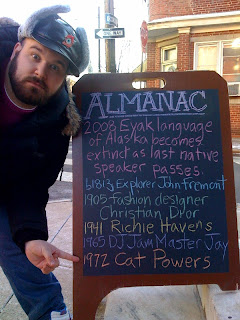 ALMANAC
2008 Eyak language
of Alaska becomes
extinct as last native
speaker passes.
b1813 Explorer John Fremont
1905 fashion designer
Christian Dior
1941 Richie Havens
1965 DJ Jam Master Jay
1972 Cat Powers